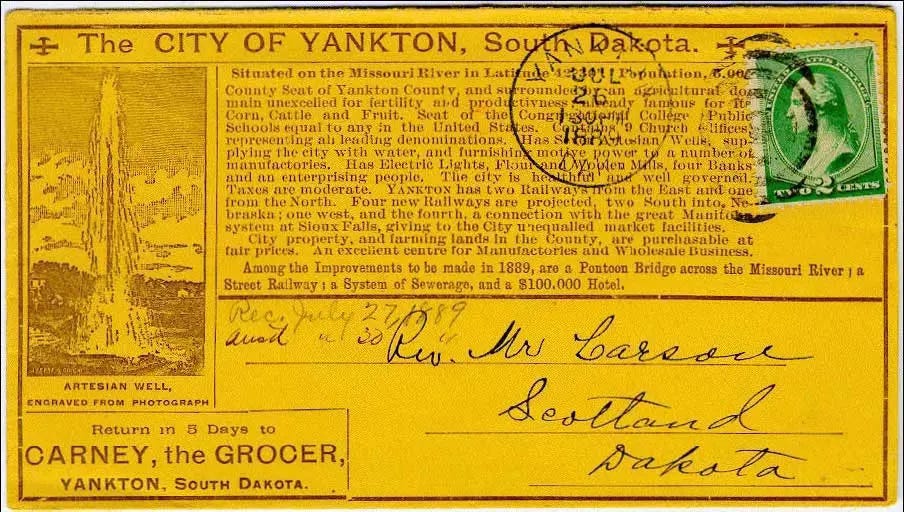 The CITY OF YANKTON, South Dakota.
Situated on the Missouri River in Latitude Population,
County Seat of Yankton County, and surrounded by an agricultural do-
main unexcelled for fertility and productiveness already famous for its
Corn, Cattle and Fruit. Seat of the Congregational College Public
Schools equal to any in the United States. Contains 9 Church Edifices
representing all leading denominations. Has Artesian Wells, sup-
plying the city with water, and furnishing motive power to a number of
manufactories. Has Electric Lights, Flour and Woolen Mills, four Banks
and an enterprising people. The city is healthful and well governed.
Taxes are moderate. YANKTON has two Railways from the East and one
from the North. Four new Railways are projected, two South into, Ne-
braska; one west, and the fourth, a connection with the great Manitoba
system at Sioux Falls, giving to the City unequalled market facilities.
City property, and farming lands in the County, are purchasable at
fair prices. An excellent centre for Manufactories and Wholesale Business.
Among the Improvements to be made in 1889, are a Pontoon Bridge across the Missouri River; a
Street Railway; a System of Sewerage, and a $100,000 Hotel.
YANKT
JUL
26
1889
TWO 2 CENTS
Rec. July 27, 1889
ansd " 30 "
Rev. Mr Larson
Scotland
Dakota
ARTESIAN WELL,
ENGRAVED FROM PHOTOGRAPH
Return in 5 Days to
CARNEY, the GROCER,
YANKTON, SOUTH DAKOTA.